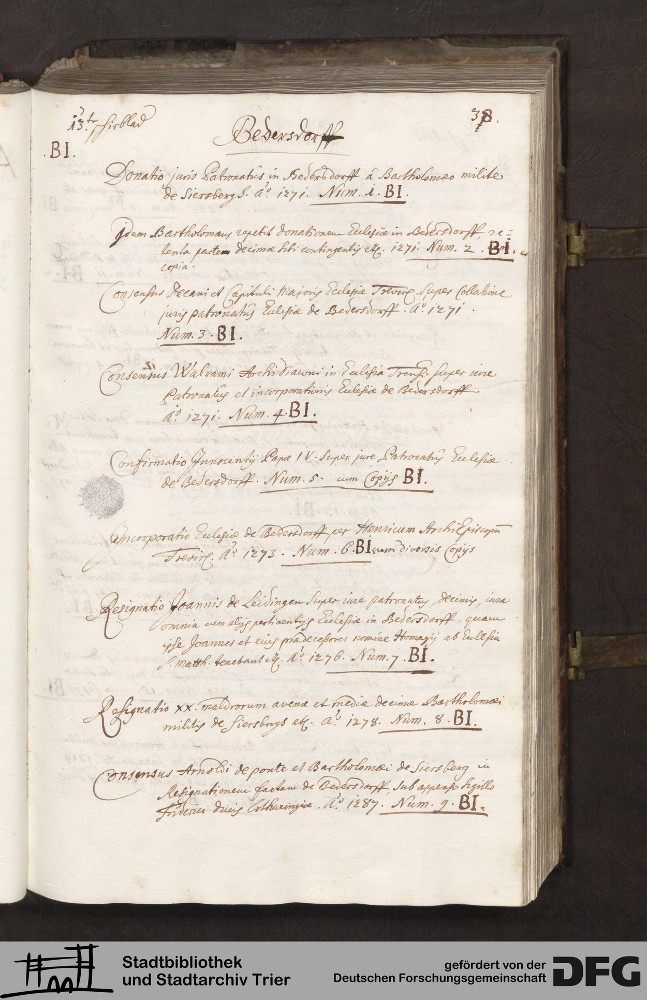 13te schieblad
38.
Bedersdorff
BI.
Donatio juris Patronatus in Bedersdorff à Bartholomæo milite
de Siersberg. Aº 1271. Num. 1. BI.
Idem Bartholomæus repetit donationem Ecclesiæ in Bedersdorff, re=
tenta parte decimæ sibi contingentis etc. 1271. Num. 2. BI. c
copia.
Consensus Decani et Capituli Majoris Ecclesiæ Trevir. super Collatione
juris patronatus Ecclesiæ de Bedersdorff. Aº 1271.
Num. 3. BI.
Consensus Walrami Archidiaconi in Ecclesia Trevir. super iure
Patronatus et incorporationis Ecclesiæ de Bedersdorff
Aº 1271. Num. 4. BI.
Confirmatio Innocentij Papæ IV. super jure Patronatus Ecclesiæ
de Bedersdorff. Num. 5. cum Copijs BI.
Incorporatio Ecclesiæ de Bedersdorff per Henricum ArchiEpiscopum
Trevir. Aº 1273. Num. 6. BI. cum diversis Copijs
Resignatio Joannis de Leidingen super iure patronatus, decimis, iura
omnia cum alijs pertinentijs Ecclesiæ in Bedersdorff, quam
ipse Joannes et eius prædecessores nomine Homagij ab Ecclesia
S. Matth. tenebant etc. Aº 1276. Num. 7. BI.
Resignatio xx. maldrorum avenæ et mediæ decimæ Bartholomæi
militis de Siersbergs etc. Aº 1278. Num. 8. BI.
Consensus Arnoldi de ponte et Bartholomæi de Siersberg in
Resignationem factam de Bedersdorff, sub appenso sigillo
Friderici Ducis Lotharingiæ. Aº 1287. Num. 9. BI.
Stadtbibliothek
und Stadtarchiv Trier
gefördert von der
Deutschen Forschungsgemeinschaft
DFG